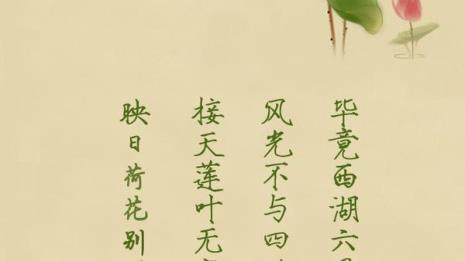 毕竟西湖六
风光不与四
接天莲叶无
映日荷花别